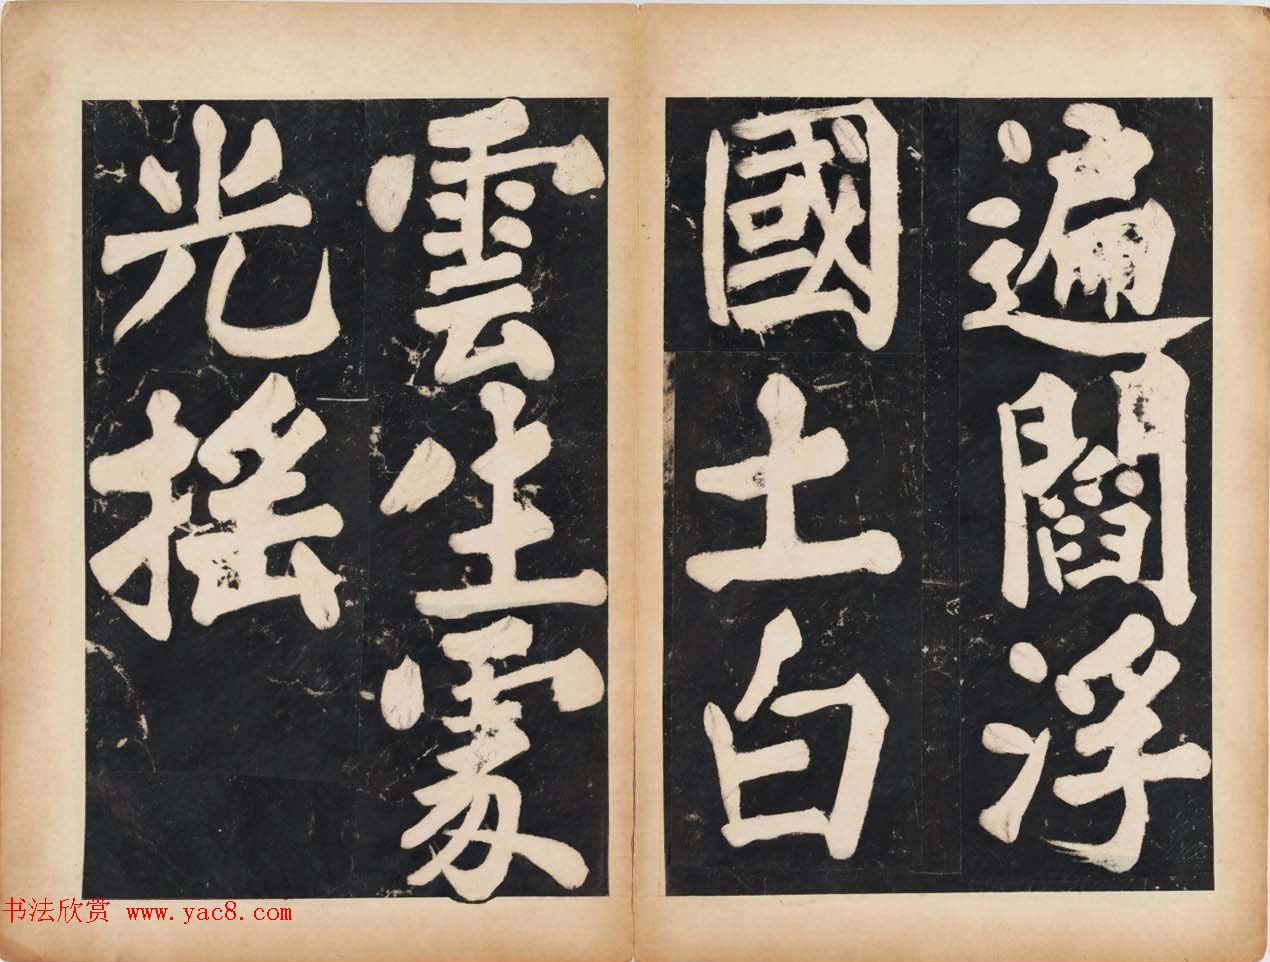 遍閻浮
國土白
雲生處
光搖
书法欣赏 www.yac8.com